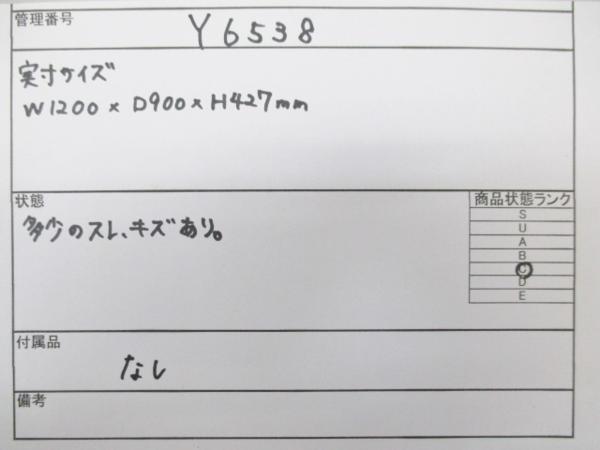 管理番号 Y6538
実寸サイズ
W1200×D900×H427mm
状態
多少のスレ、キズあり。
商品状態ランク
S
U
A
B
C
D
E
付属品
なし
備考